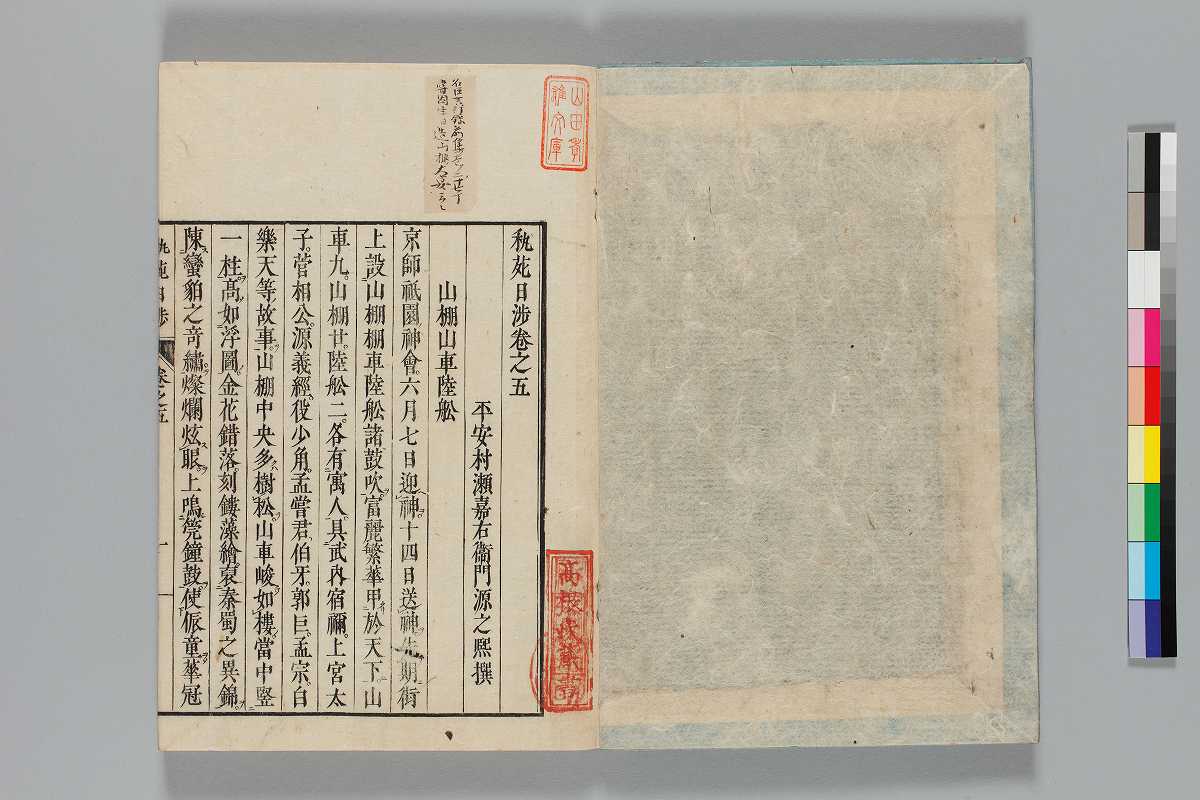 山田孝
雄文庫
秇苑日渉卷之五
平安村瀬嘉右衞門源之熙撰
山棚山車陸舩
京師祇園神會六月七日迎神十四日送神先期街
上設山棚棚車陸舩諸鼓吹富麗繁華甲於天下山
車九山棚廿陸舩二各有寓人具武內宿禰上宮太
子菅相公源義經役少角孟嘗君伯牙郭巨孟宗白
樂天等故事山棚中央多樹松山車峻如樓當中竪
一柱高如浮圖金花錯落刻鏤藻繪裒秦蜀之異錦
陳蠻貊之竒繡燦爛炫眼上鳴箢鐘鼓使侲童華冠
秇苑日渉 卷之五 一